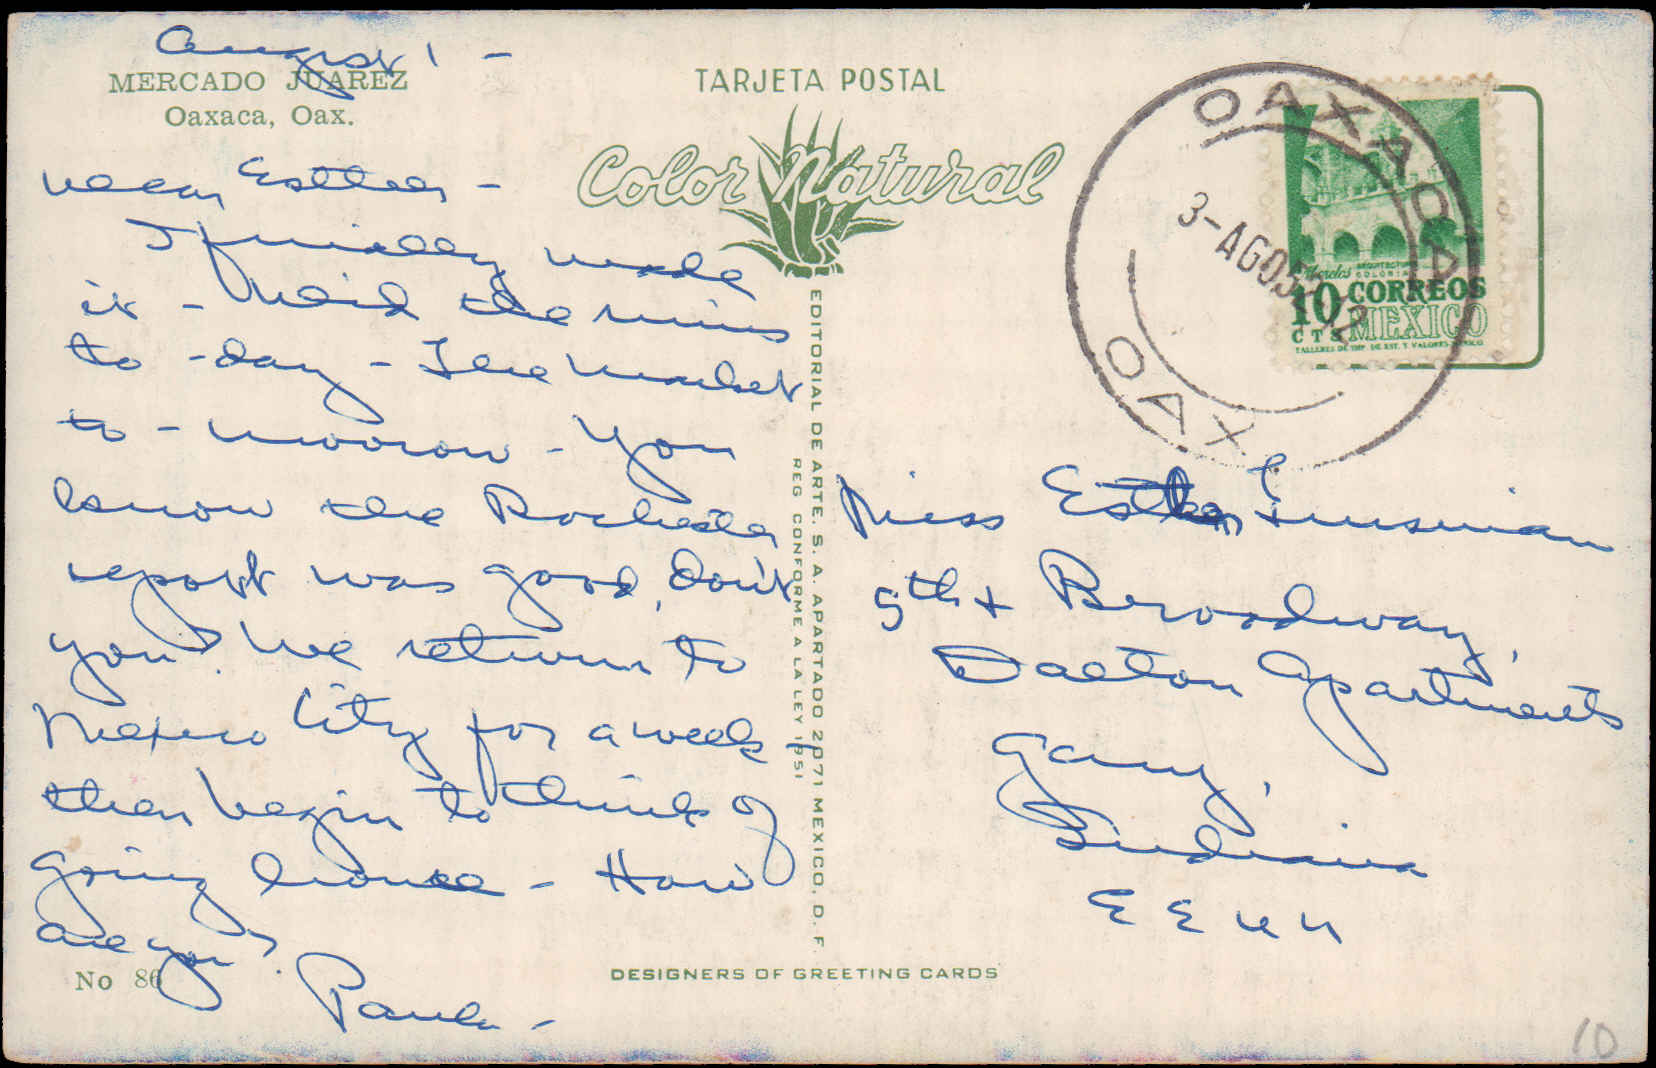 August 1 -
MERCADO JUAREZ
Oaxaca, Oax.
Dear Esther -
I finally made
it - Did the ruins
to-day - The Market
to-morrow - You
know the Rochester
report was good, don't
you? We return to
Mexico City for a week -
then begin to think of
going home - How
are you?
Paula -
No 86
TARJETA POSTAL
Color Natural
EDITORIAL DE ARTE. S. A. APARTADO 2071 MEXICO. D. F.
REG CONFORME A LA LEY 1951
DESIGNERS OF GREETING CARDS
OAXACA
3-AGO55-12
OAX.
Morelos ARQUITECTURA COLONIAL
10 CTS
CORREOS
MEXICO
TALLERES DE IMP. DE EST. Y VALORES-MEXICO
Miss Esther
5th + Broadway,
Dalton Apartments
Gary,
Indiana
E E U U
10